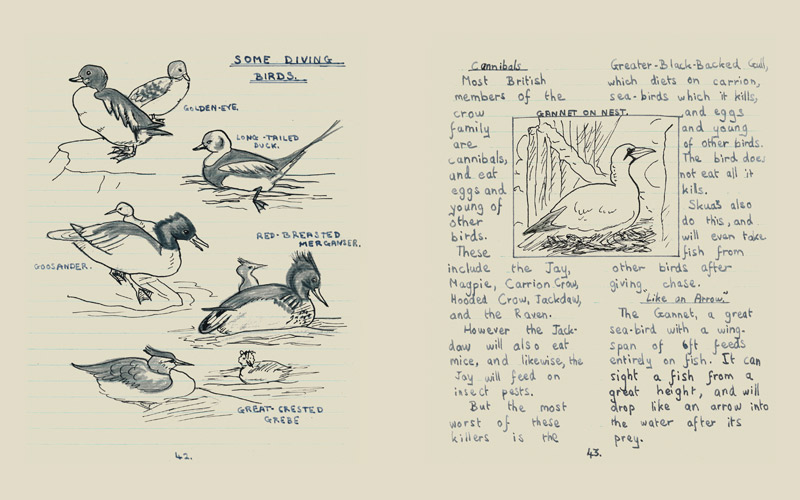 SOME DIVING
BIRDS.
GOLDEN-EYE.
LONG-TAILED
DUCK.
RED-BREASTED
MERGANSER.
GOOSANDER.
GREAT-CRESTED
GREBE
42.
Cannibals
Most British
members of the
crow
family
are
cannibals,
and eat
eggs and
young of
other
birds.
These
include the Jay,
Magpie, Carrion Crow,
Hooded Crow, Jackdaw,
and the Raven.
However the Jack-
daw will also eat
mice, and likewise, the
Jay will feed on
insect pests.
But the most
worst of these
killers is the
GANNET ON NEST.
Greater-Black-Backed Gull,
which diets on carrion,
sea-birds which it kills,
and eggs
and young
of other birds.
The bird does
not eat all it
kills.
Skuas also
do this, and
will even take
fish from
other birds after
giving chase.
"Like an Arrow."
The Gannet, a great
sea-bird with a wing-
span of 6ft feeds
entirely on fish. It can
sight a fish from a
great height, and will
drop like an arrow into
the water after its
prey.
43.